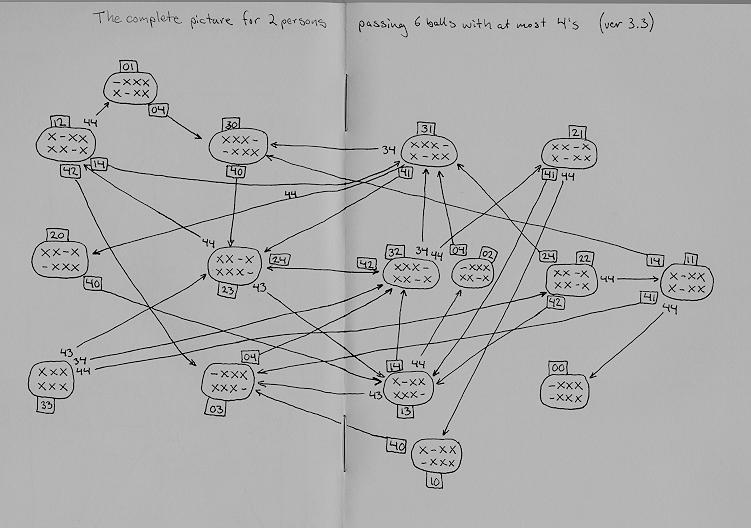 The complete picture for 2 persons passing 6 balls with at most 4's (ver 3.3)
01
-xxx
x-xx
04
12
44
x-xx
xx-x
42
14
30
xxx-
-xxx
40
34
31
xxx-
x-xx
41
21
xx-x
x-xx
41 44
44
20
xx-x
-xxx
40
44
xx-x
xxx-
23
24
43
42
32
xxx-
xxx-
34
44
04
02
-xxx
xx-x
24
22
xx-x
xx-x
42
44
14
11
x-xx
x-xx
41
44
43
34
44
xxx
xxx
33
04
-xxx
xxx-
03
14
44
x-xx
xxx-
13
43
00
-xxx
-xxx
40
x-xx
-xxx
10